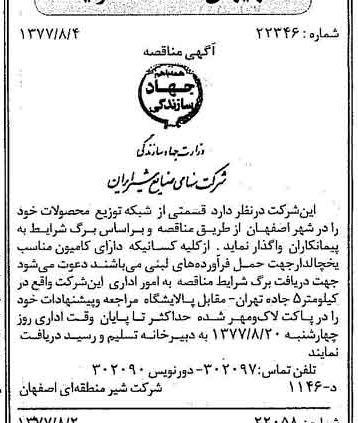 شماره : ۲۲۳۴۶
۱۳۷۷/۸/۴
آگهی مناقصه
همه باهم
جهاد
سازندگی
وزارت جهاد سازندگی
شرکت سهامی صنایع شیر ایران
این شرکت درنظر دارد قسمتی از شبکه توزیع محصولات خود
را در شهر اصفهان از طریق مناقصه و براساس برگ شرایط به
پیمانکاران واگذار نماید . ازکلیه کسانیکه دارای کامیون مناسب
یخچالدارجهت حمل فرآورده‌های لبنی می‌باشند دعوت می‌شود
جهت دریافت برگ شرایط مناقصه به امور اداری این‌شرکت واقع در
کیلومتر۵ جاده تهران- مقابل پالایشگاه مراجعه وپیشنهادات خود
را در پاکت لاک‌ومهر شده حداکثر تا پایان وقت اداری روز
چهارشنبه ۱۳۷۷/۸/۲۰ به دبیرخانه تسلیم و رسید دریافت
نمایند
تلفن تماس:۳۰۲۰۹۷- دورنویس ۳۰۲۰۹۰
د-۱۱۴۶ شرکت شیر منطقه‌ای اصفهان